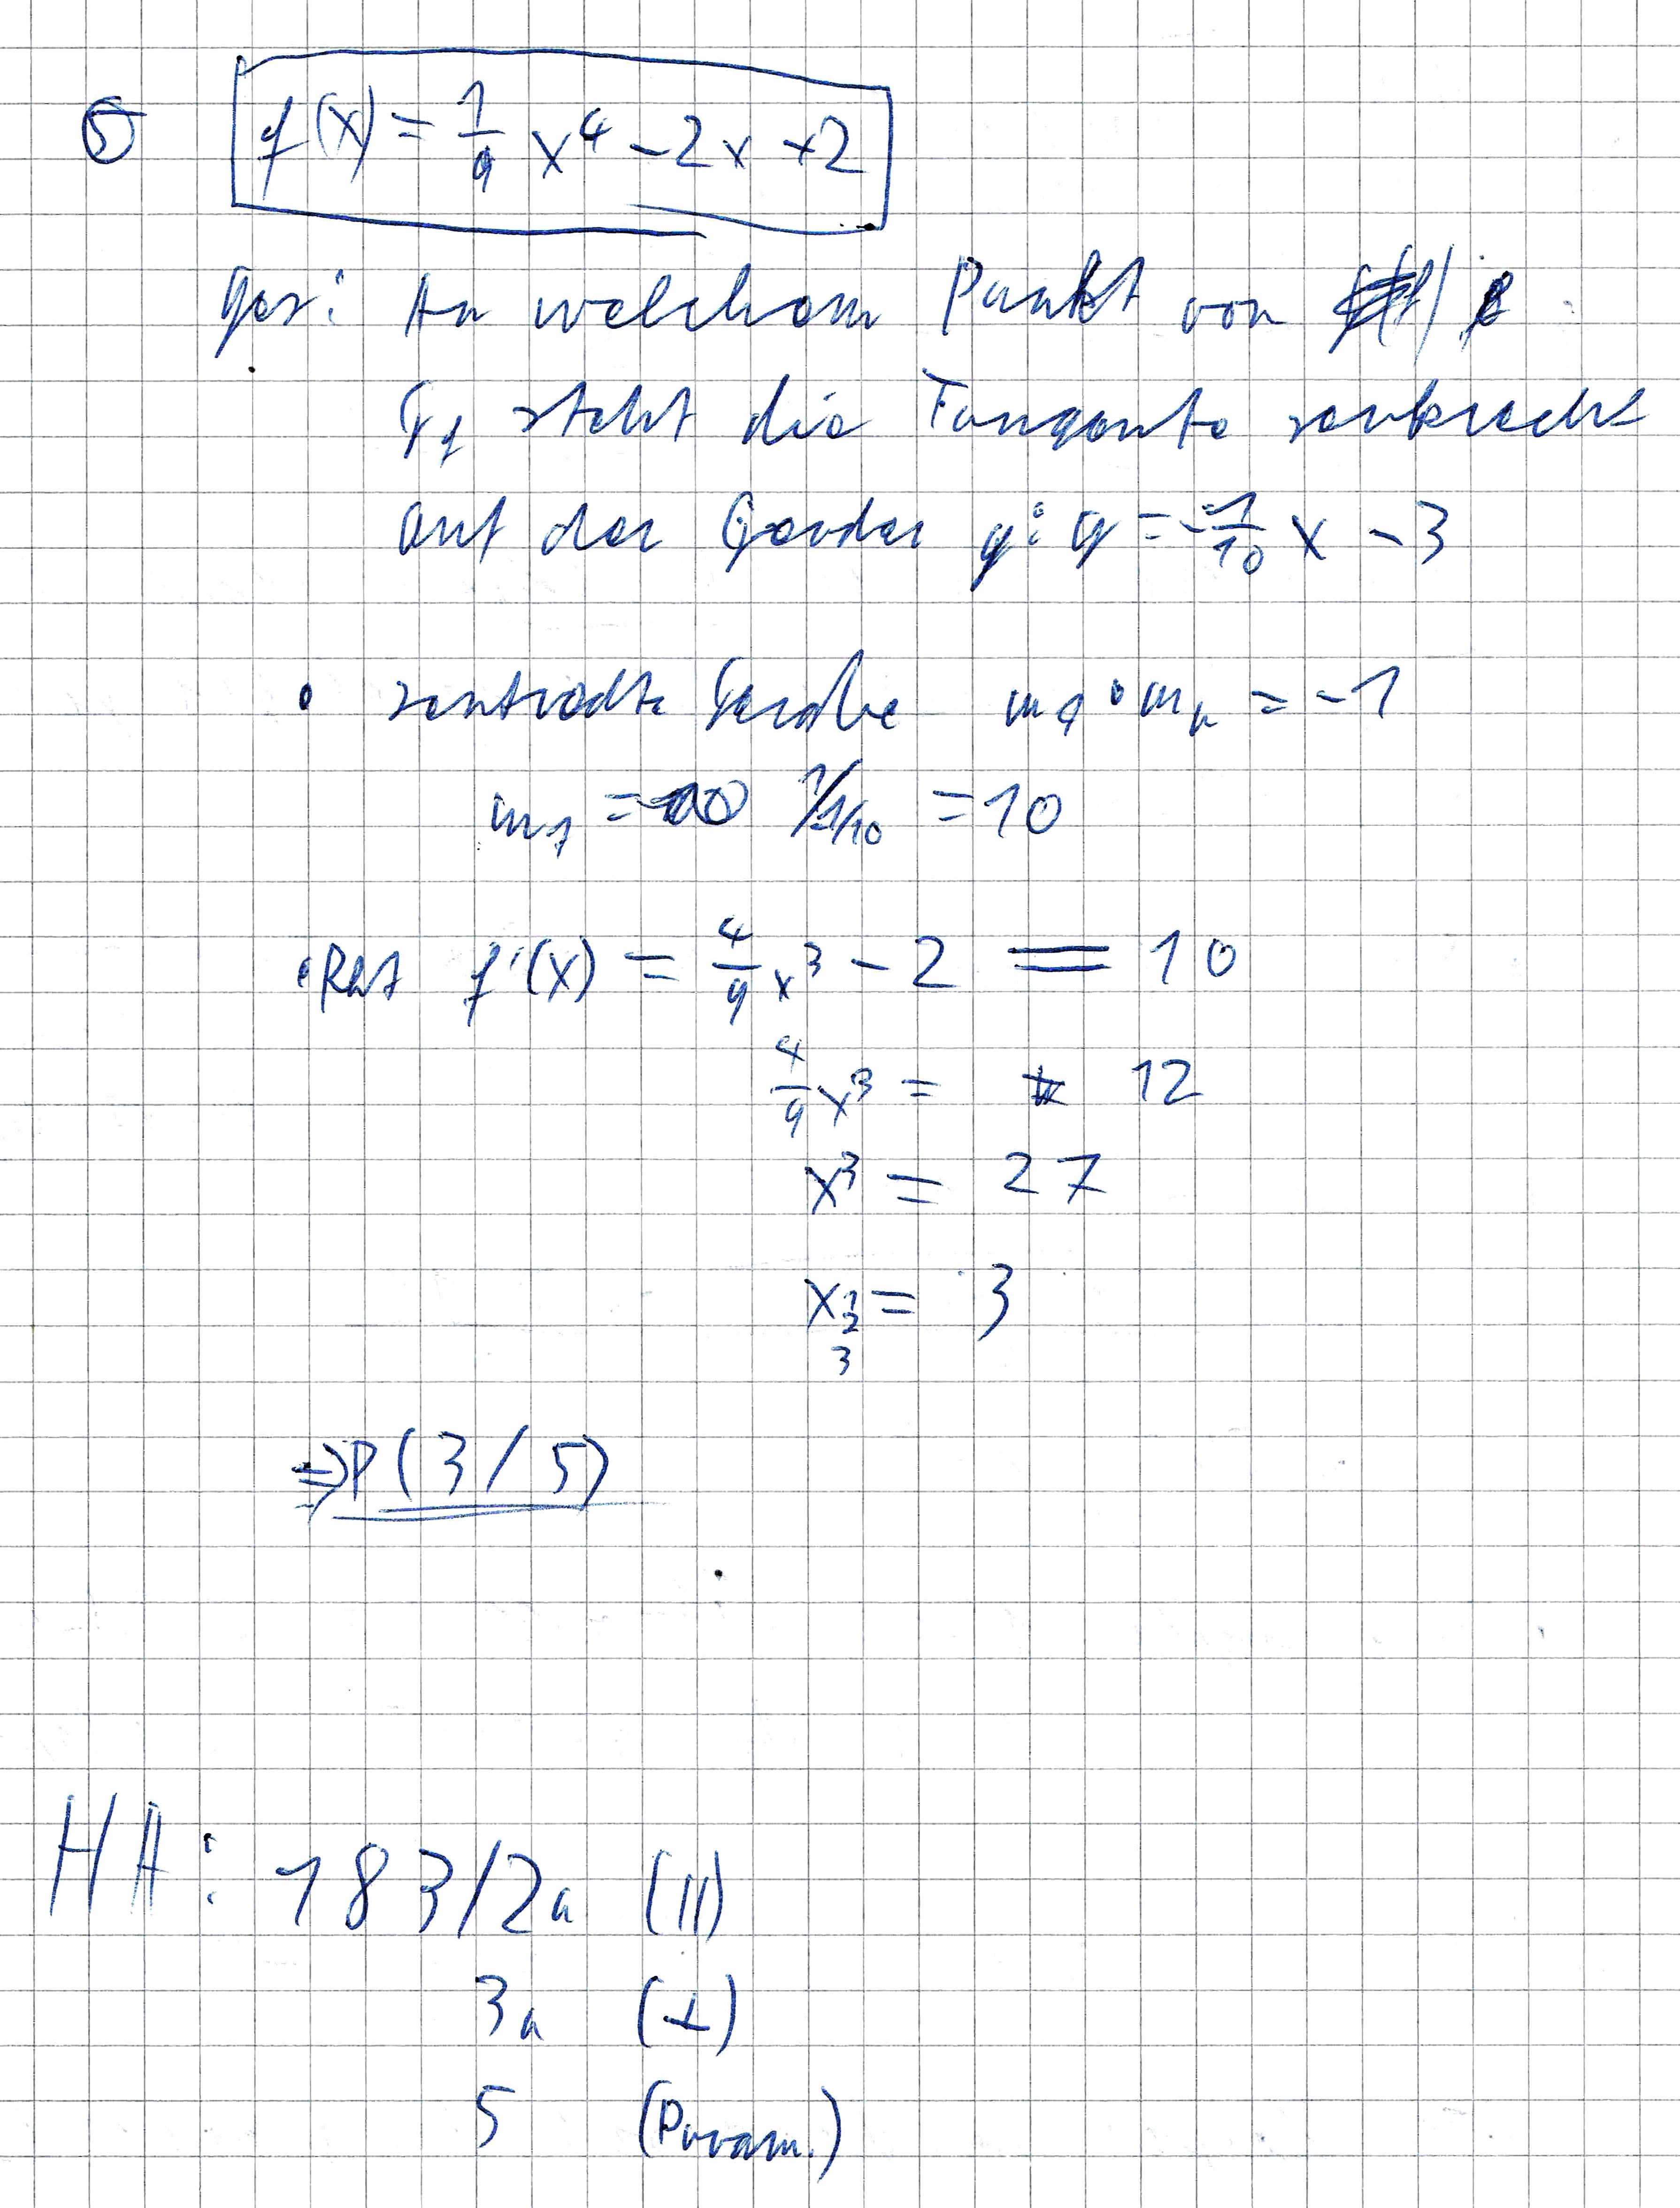 ⑤ f(x) = 1/9 x⁴ - 2x + 2
ges: An welchem Punkt von
Gf steht die Tangente senkrecht
auf der Geraden g: y = -1/10 x - 3
• senkrechte Gerade m₁ · m₂ = -1
m₁ = 1/1/10 = 10
• f'(x) = 4/9 x³ - 2 = 10
4/9 x³ = 12
x³ = 27
x₁ ₂ ₃ = 3
⇒ P(3/5)
HA: 183/2a (||)
3a (⊥)
5 (Param.)